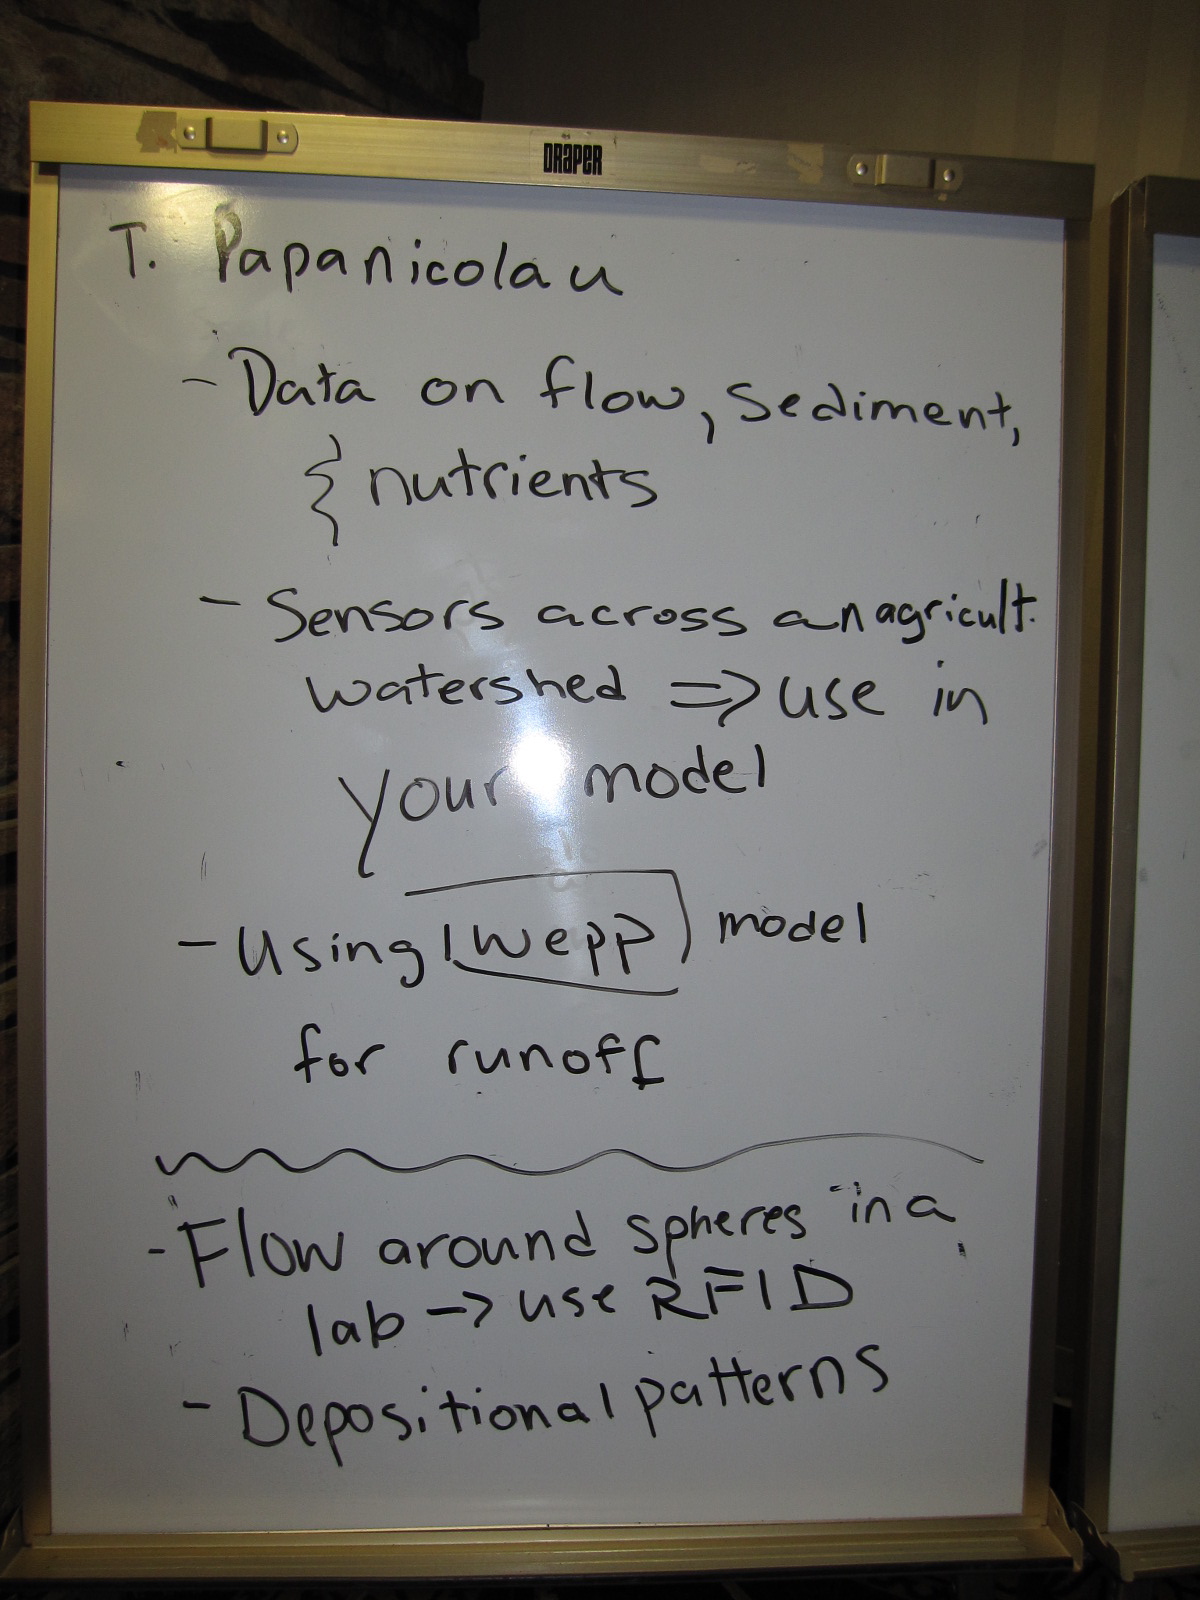 DRAPER
T. Papanicolau
- Data on flow, sediment,
& nutrients
- Sensors across an agricult.
watershed => use in
your model
- Using wepp model
for runoff
- Flow around spheres in a
lab -> use RFID
- Depositional patterns